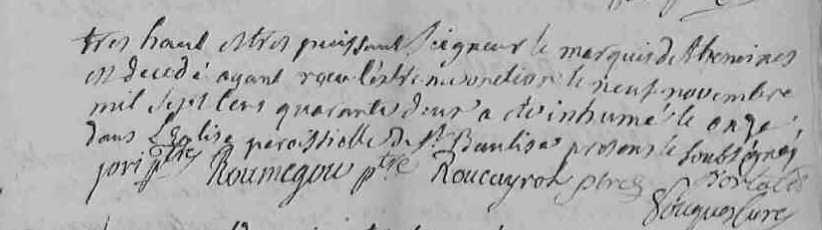 tres haut et tres puissant Seigneur le marquis de themines
est decedé ayant receu l'extreme onction le neuf novembre
mil sept cens quarante deux a eté inhumé le onze
dans L'eglise paroissielle de st. Baulise presens le soubsignés
jori ptre Roumegou ptre Roucayrol ptre
fouques Curé